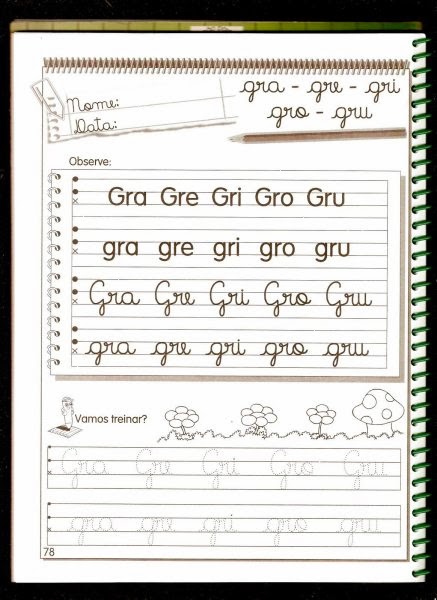 gra - gre - gri
gro - gru
Nome:
Data:
Observe:
Gra Gre Gri Gro Gru
gra gre gri gro gru
Gra Gre Gri Gro Gru
gra gre gri gro gru
Vamos treinar?
Gra Gre Gri Gro Gru
gra gre gri gro gru
78